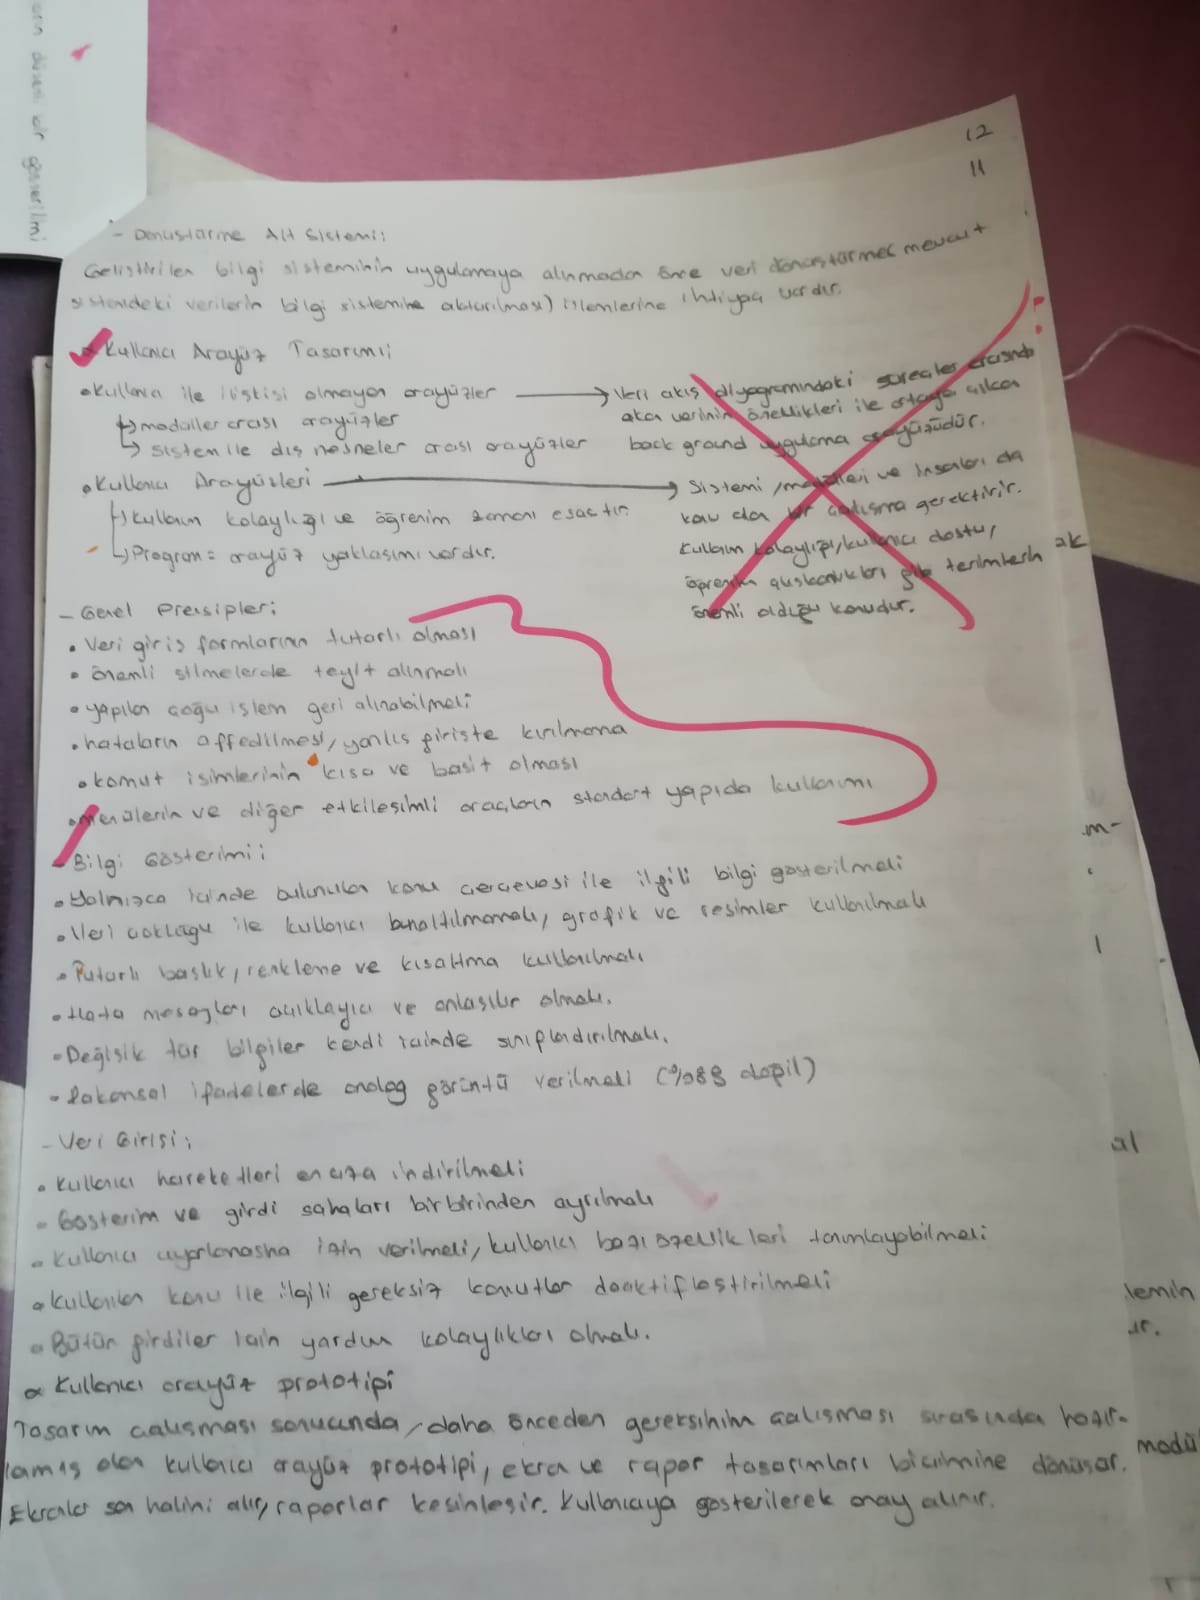 12
11
- Dönüştürme Alt Sistemi:
Geliştirilen bilgi sisteminin uygulamaya alınmadan önce veri dönüştürme( mevcut
sistemdeki verilerin bilgi sistemine aktarılması) işlemlerine ihtiyaç vardır.
Kullanıcı Arayüz Tasarımı;
• Kullanıcı ile ilişkisi olmayan arayüzler → Veri akış diyagramındaki süreçler arasında
↳ modüller arası arayüzler
akan verinin özellikleri ile ortaya çıkan
↳ sistem ile dış nesneler arası arayüzler
back ground uygulama arayüzüdür.
• Kullanıcı Arayüzleri → Sistemi, makineleri ve insanları da
↳ kullanım kolaylığı ve öğrenim zamanı esastır.
bir çalışma gerektirir.
↳ Program = arayüz yaklaşımı vardır.
kullanım kolaylığı, kullanıcı dostu,
öğrenim alışkanlıkları gibi terimlerin
önemli olduğu konudur.
- Genel Prensipler;
• Veri giriş formlarının tutarlı olması
• önemli silmelerde teyit alınmalı
• yapılan çoğu işlem geri alınabilmeli
• hataların affedilmesi, yanlış girişte kırılmama
• komut isimlerinin kısa ve basit olması
• menülerin ve diğer etkileşimli araçların standart yapıda kullanımı
- Bilgi Gösterimi;
• Yalnızca içinde bulunulan konu çerçevesi ile ilgili bilgi gösterilmeli
• Veri çokluğu ile kullanıcı bunaltılmamalı, grafik ve resimler kullanılmalı
• Tutarlı başlık, renkleme ve kısaltma kullanılmalı
• Hata mesajları açıklayıcı ve anlaşılır olmalı.
• Değişik tür bilgiler kendi içinde sınıflandırılmalı.
• Rakamsal ifadelerde analog görüntü verilmeli (%88 değil)
- Veri Girişi;
• Kullanıcı hareketleri en aza indirilmeli
• Gösterim ve girdi sahaları birbirinden ayrılmalı
• Kullanıcı uyarlamasına izin verilmeli, kullanıcı bazı özellikleri tanımlayabilmeli
• Kullanılan konu ile ilgili gereksiz komutlar deaktifleştirilmeli
• Bütün girdiler için yardım kolaylıkları olmalı.
∝ Kullanıcı arayüz prototipi
Tasarım çalışması sonucunda, daha önceden gereksinim çalışması sırasında hazır-
lamış olan kullanıcı arayüz prototipi, ekran ve rapor tasarımları biçimine dönüşür.
Ekranlar son halini alır, raporlar kesinleşir. Kullanıcıya gösterilerek onay alınır.